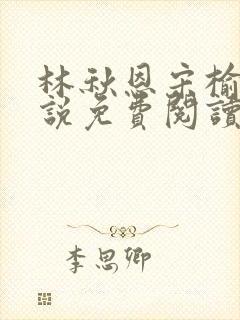 林秋恩宋榆
說免費閱讀
李思卿